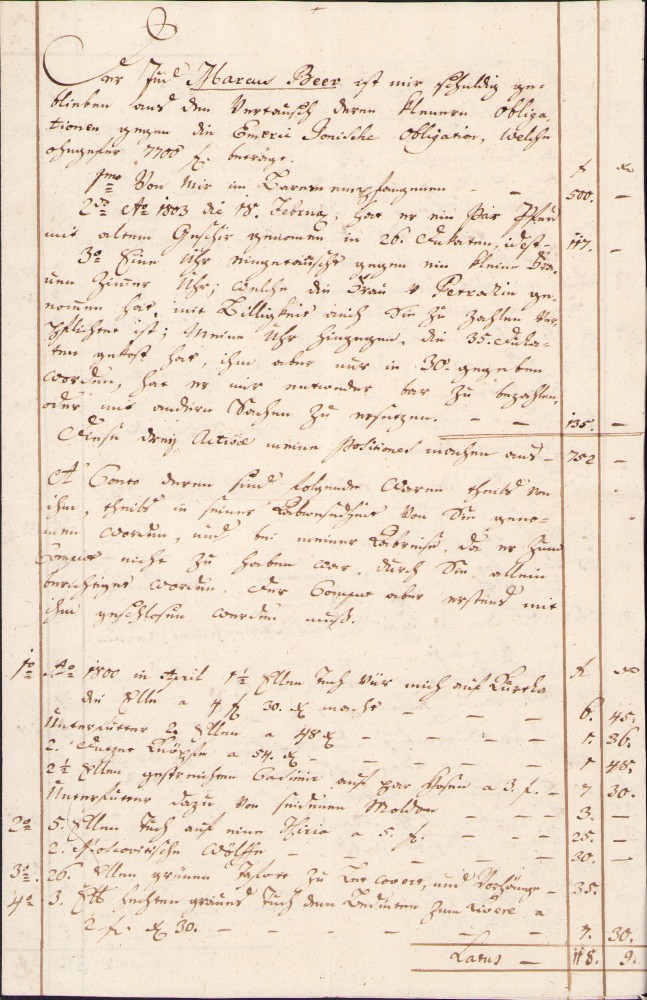 Der Jud Marcus Beer ist mir schuldig ge-
blieben aus dem Vertausch deren kleinern Obliga-
tionen gegen die Emeric Jonische Obligation, welche
ohngefär 7700 f. beträgt.
f x
1mo Von mir im Barem empfangenen — — 500. —
2do Ao 1803 die 18. Februar, hat er ein Par Pferd
mit altem Geschir genomen in 26. Dukaten, idest — 117. —
3o Eine Uhr eingetauscht gegen ein kleine
Zimer Uhr; welche die Frau v Petrachin ge-
nomen hat, mit Billigkeit auch Sie zu zahlen ver-
pflichtet ist; Meine Uhr hingegen, die 35. Duka-
ten gekost hat, ihm aber nur in 30. gegeben
worden, hat er mir entweder bar zu bezahlen,
oder mit andern Sachen zu ersetzen. — — 135. —
Diese drey Active meine Positionen machen aus — 752 —
A Conto deren sind folgende Waren theils von
ihm, theils in seiner Abwesenheit von Sie geno-
men worden, und bei meiner Abreise, da er zum
Comput nicht zu haben war, durch Sie allein
berichtiget worden. Der Comput aber erstens mit
ihm geschlosen werden muß.
f x
1o Ao 1800 in April 1½ Ellen Tuch vür mich auf
die Elle a 4 f 30. x macht — — — 6. 45.
Unterfutter 2 Ellen a 48 x — — — 1. 36.
2. Dutzet Knöpfe a 54. x — — — 1 48.
2½ Ellen gestreichten Casimir auf par Hosen a 3. f. — 7 30.
Unterfutter dazu von seidenen Moldon — — — 3. —
2o 5. Ellen Tuch auf eine a 5. f. — — — 25. —
2. Moscovitische Wölffe — — — 30. —
3o. 26. Ellen grünen Tafet zu, und Vorhänge — 35.
4o 3. Ell lichten graues Tuch dem Bedinten zum Livere a
2 f. x 30. — — — — 7. 30.
Latus — 118. 9.